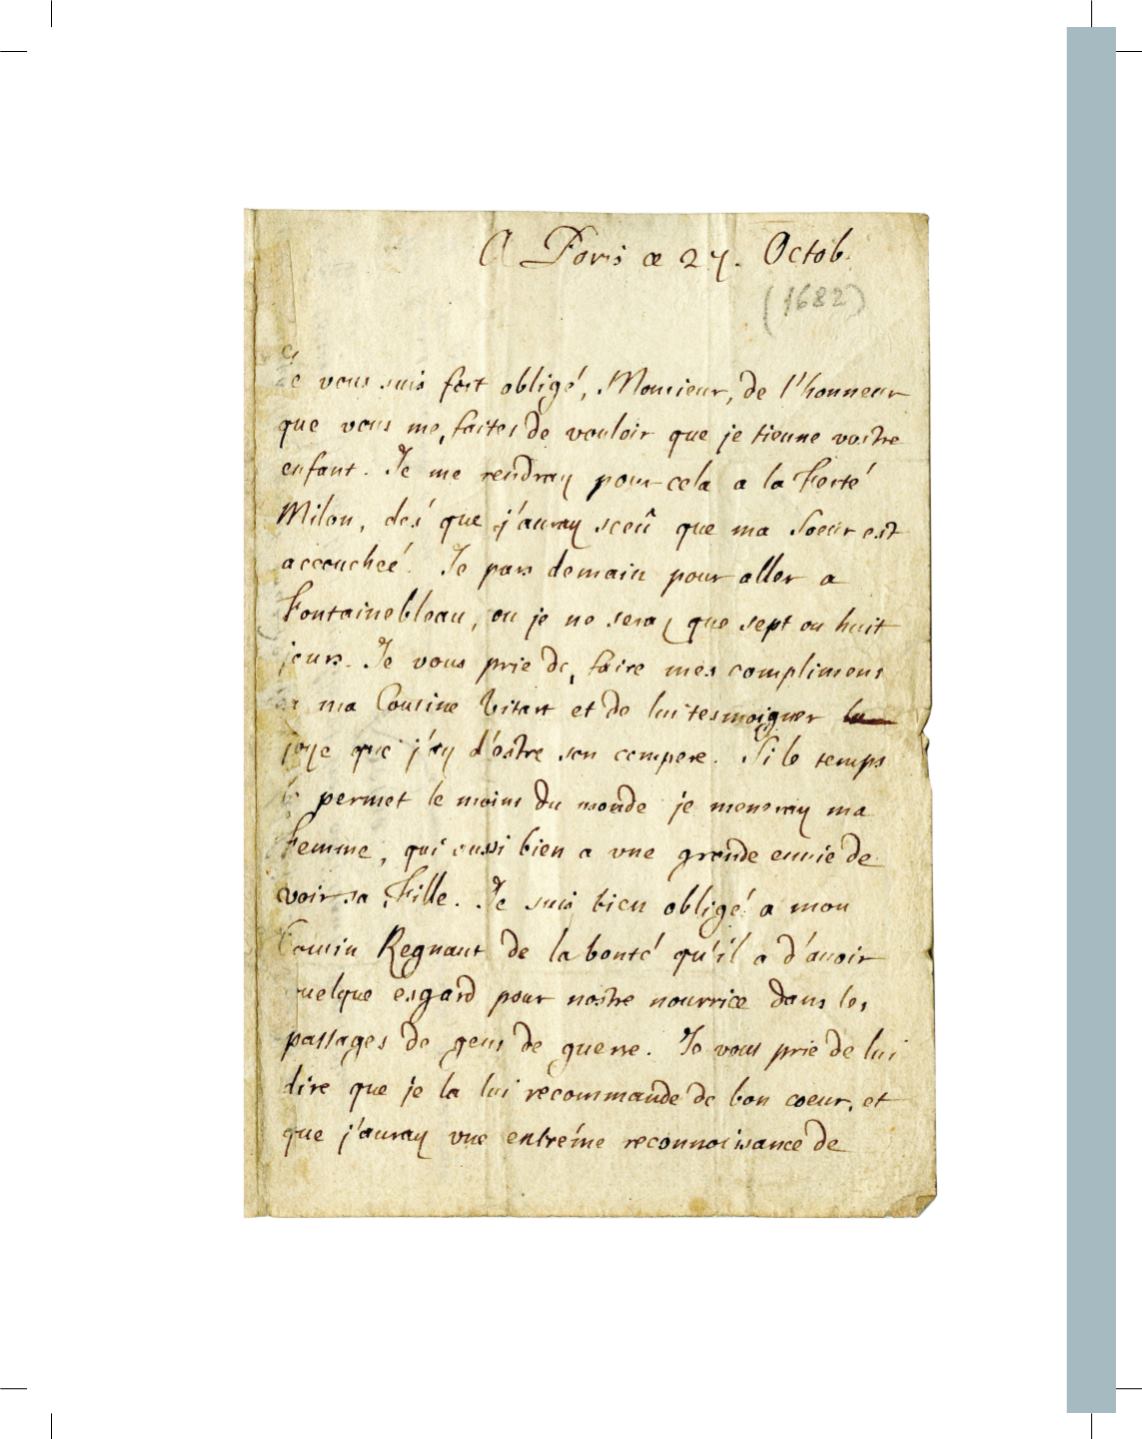 A Paris ce 27. Octob.
(1682)
Je vous suis fort obligé, Monsieur, de l'honneur
que vous me faites de vouloir que je tienne vostre
enfant. Je me rendray pour cela a la Ferté
Milon, des que j'auray sceû que ma Soeur est
accouchée. Je pars demain pour aller a
Fontainebleau, ou je ne seray que sept ou huit
jours. Je vous prie de faire mes complimens
a ma Cousine Vitart et de lui tesmoigner la
joye que j'ay d'estre son compere. Si le temps
le permet le moins du monde je meneray ma
Femme, qui aussi bien a une grande envie de
voir sa Fille. Je suis bien obligé a mon
Cousin Regnaut de la bonté qu'il a d'avoir
quelque esgard pour nostre nourrice dans les
passages de gens de guerre. Je vous prie de lui
dire que je la lui recommande de bon coeur, et
que j'auray une extréme reconnoissance de